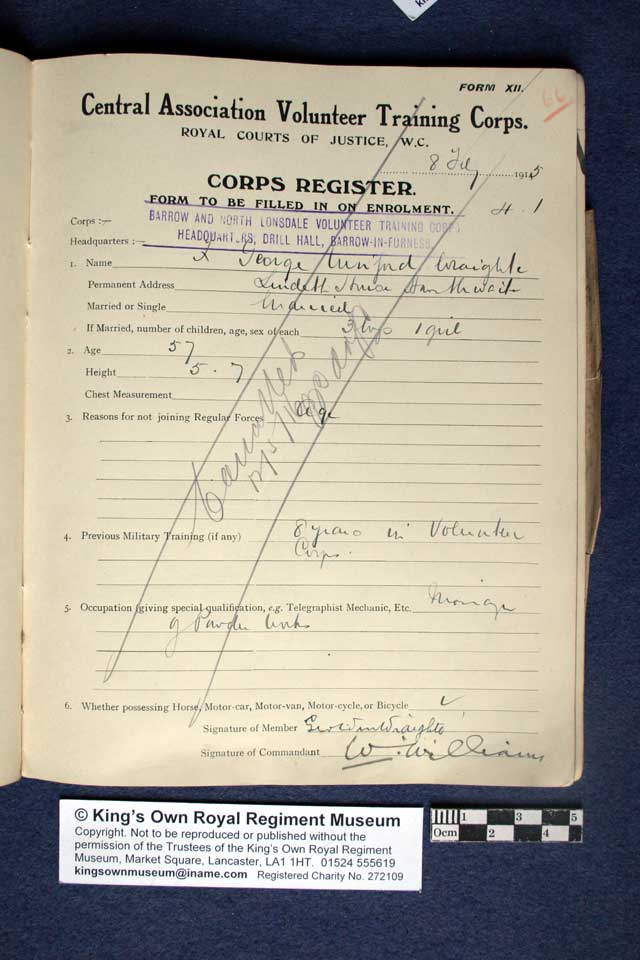 FORM XII.
66
Central Association Volunteer Training Corps.
ROYAL COURTS OF JUSTICE, W.C.
8 July 1915
CORPS REGISTER.
FORM TO BE FILLED IN ON ENROLMENT. 4.1
Corps :— BARROW AND NORTH LONSDALE VOLUNTEER TRAINING CORPS
Headquarters :— HEADQUARTERS, DRILL HALL, BARROW-IN-FURNESS.
1. Name X George Wraighte
Permanent Address House
Married or Single Married
If Married, number of children, age, sex of each 3 boys 1 girl
2. Age 57
Height 5.7
Chest Measurement
3. Reasons for not joining Regular Forces Age
Cancelled
4. Previous Military Training (if any) 8 years in Volunteer
Corps.
5. Occupation (giving special qualification, e.g. Telegraphist Mechanic, Etc. Manager
of Powder Works
6. Whether possessing Horse, Motor-car, Motor-van, Motor-cycle, or Bicycle ✓
Signature of Member Geo Wm Wraighte
Signature of Commandant W. Williams
© King's Own Royal Regiment Museum
Copyright. Not to be reproduced or published without the
permission of the Trustees of the King's Own Royal Regiment
Museum, Market Square, Lancaster, LA1 1HT. 01524 555619
kingsownmuseum@iname.com Registered Charity No. 272109
1 3 5
0cm 2 4